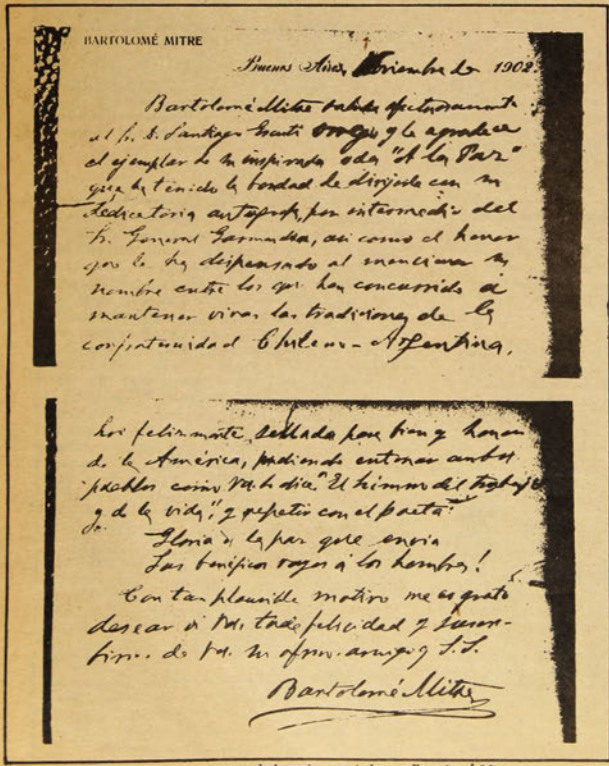 BARTOLOMÉ MITRE
Buenos Aires, Noviembre de 1902.
Bartolomé Mitre saluda afectuosamente
al Sr. D. Santiago y le agradece
el ejemplar de su inspirada oda "A la Paz"
que ha tenido la bondad de dirijirle con su
dedicatoria autógrafa, por intermedio del
Sr. General Garmendia, asi como el honor
que le ha dispensado al mencionar su
nombre entre los que han concurrido á
mantener vivas las tradiciones de la
confraternidad Chileno-Argentina,
hoi felizmente sellada para bien y honor
de la América, pudiendo entonar ambos
pueblos como Vd. lo dice "El himno del trabajo
y de la vida", y repetir con el poeta:
Gloria á la paz que envia
Sus benéficos rayos á los hombres!
Con tan plausible motivo me es grato
desear á Vd. toda felicidad y suscri-
birme de Vd. su afmo. amigo y S.S.
Bartolomé Mitre